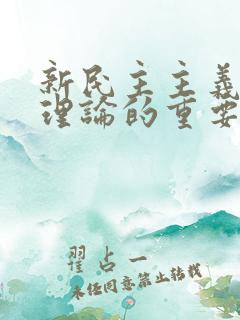 新民主主義
理論的重要
翟占一
未经同意禁止转载